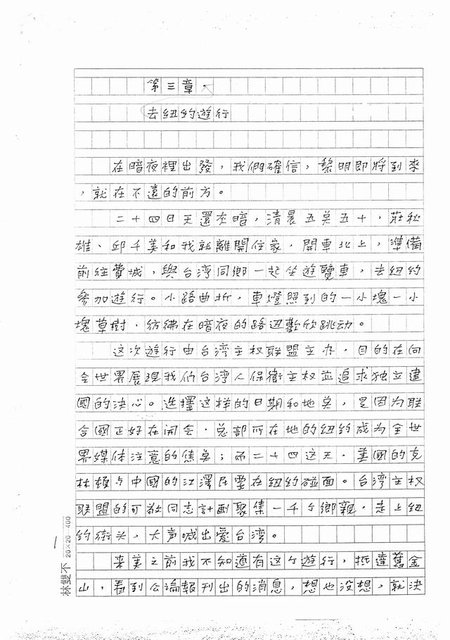 第三章、
去紐約遊行
在暗夜裡出發,我們確信,黎明即將到來
,就在不遠的前方。
二十四日天還冬暗,清晨五莫五十,莊秋
雄、邱千美和我就離開住家,開車北上,準備
前往費城,與台湾同鄉一起坐遊覽車,去紐約
參加遊行。小路曲折,車燈照到的一小塊一小
塊草樹,彷彿在暗夜的路迎歡欣跳动。
这次遊行由台湾主权联盟主办,目的在向
全世界展現我们台湾人保衛主权並追求独立建
國的决心。選擇这样的日期和地莫,是因为联
合國正好在開会,总部所在地的紐約成为全世
界媒体注意的焦莫;而二十四这天,美國的克
林頓与中國的江澤民要在紐約碰面。台湾主权
联盟的可敬同志計画聚集一千台鄉親,走上紐
約街头,大声喊出愛台湾。
來美之前我不知道有这个遊行,抵達舊金
山,看到公論報刊出的消息,想也沒想,就决
林雙不
20×20=400
一